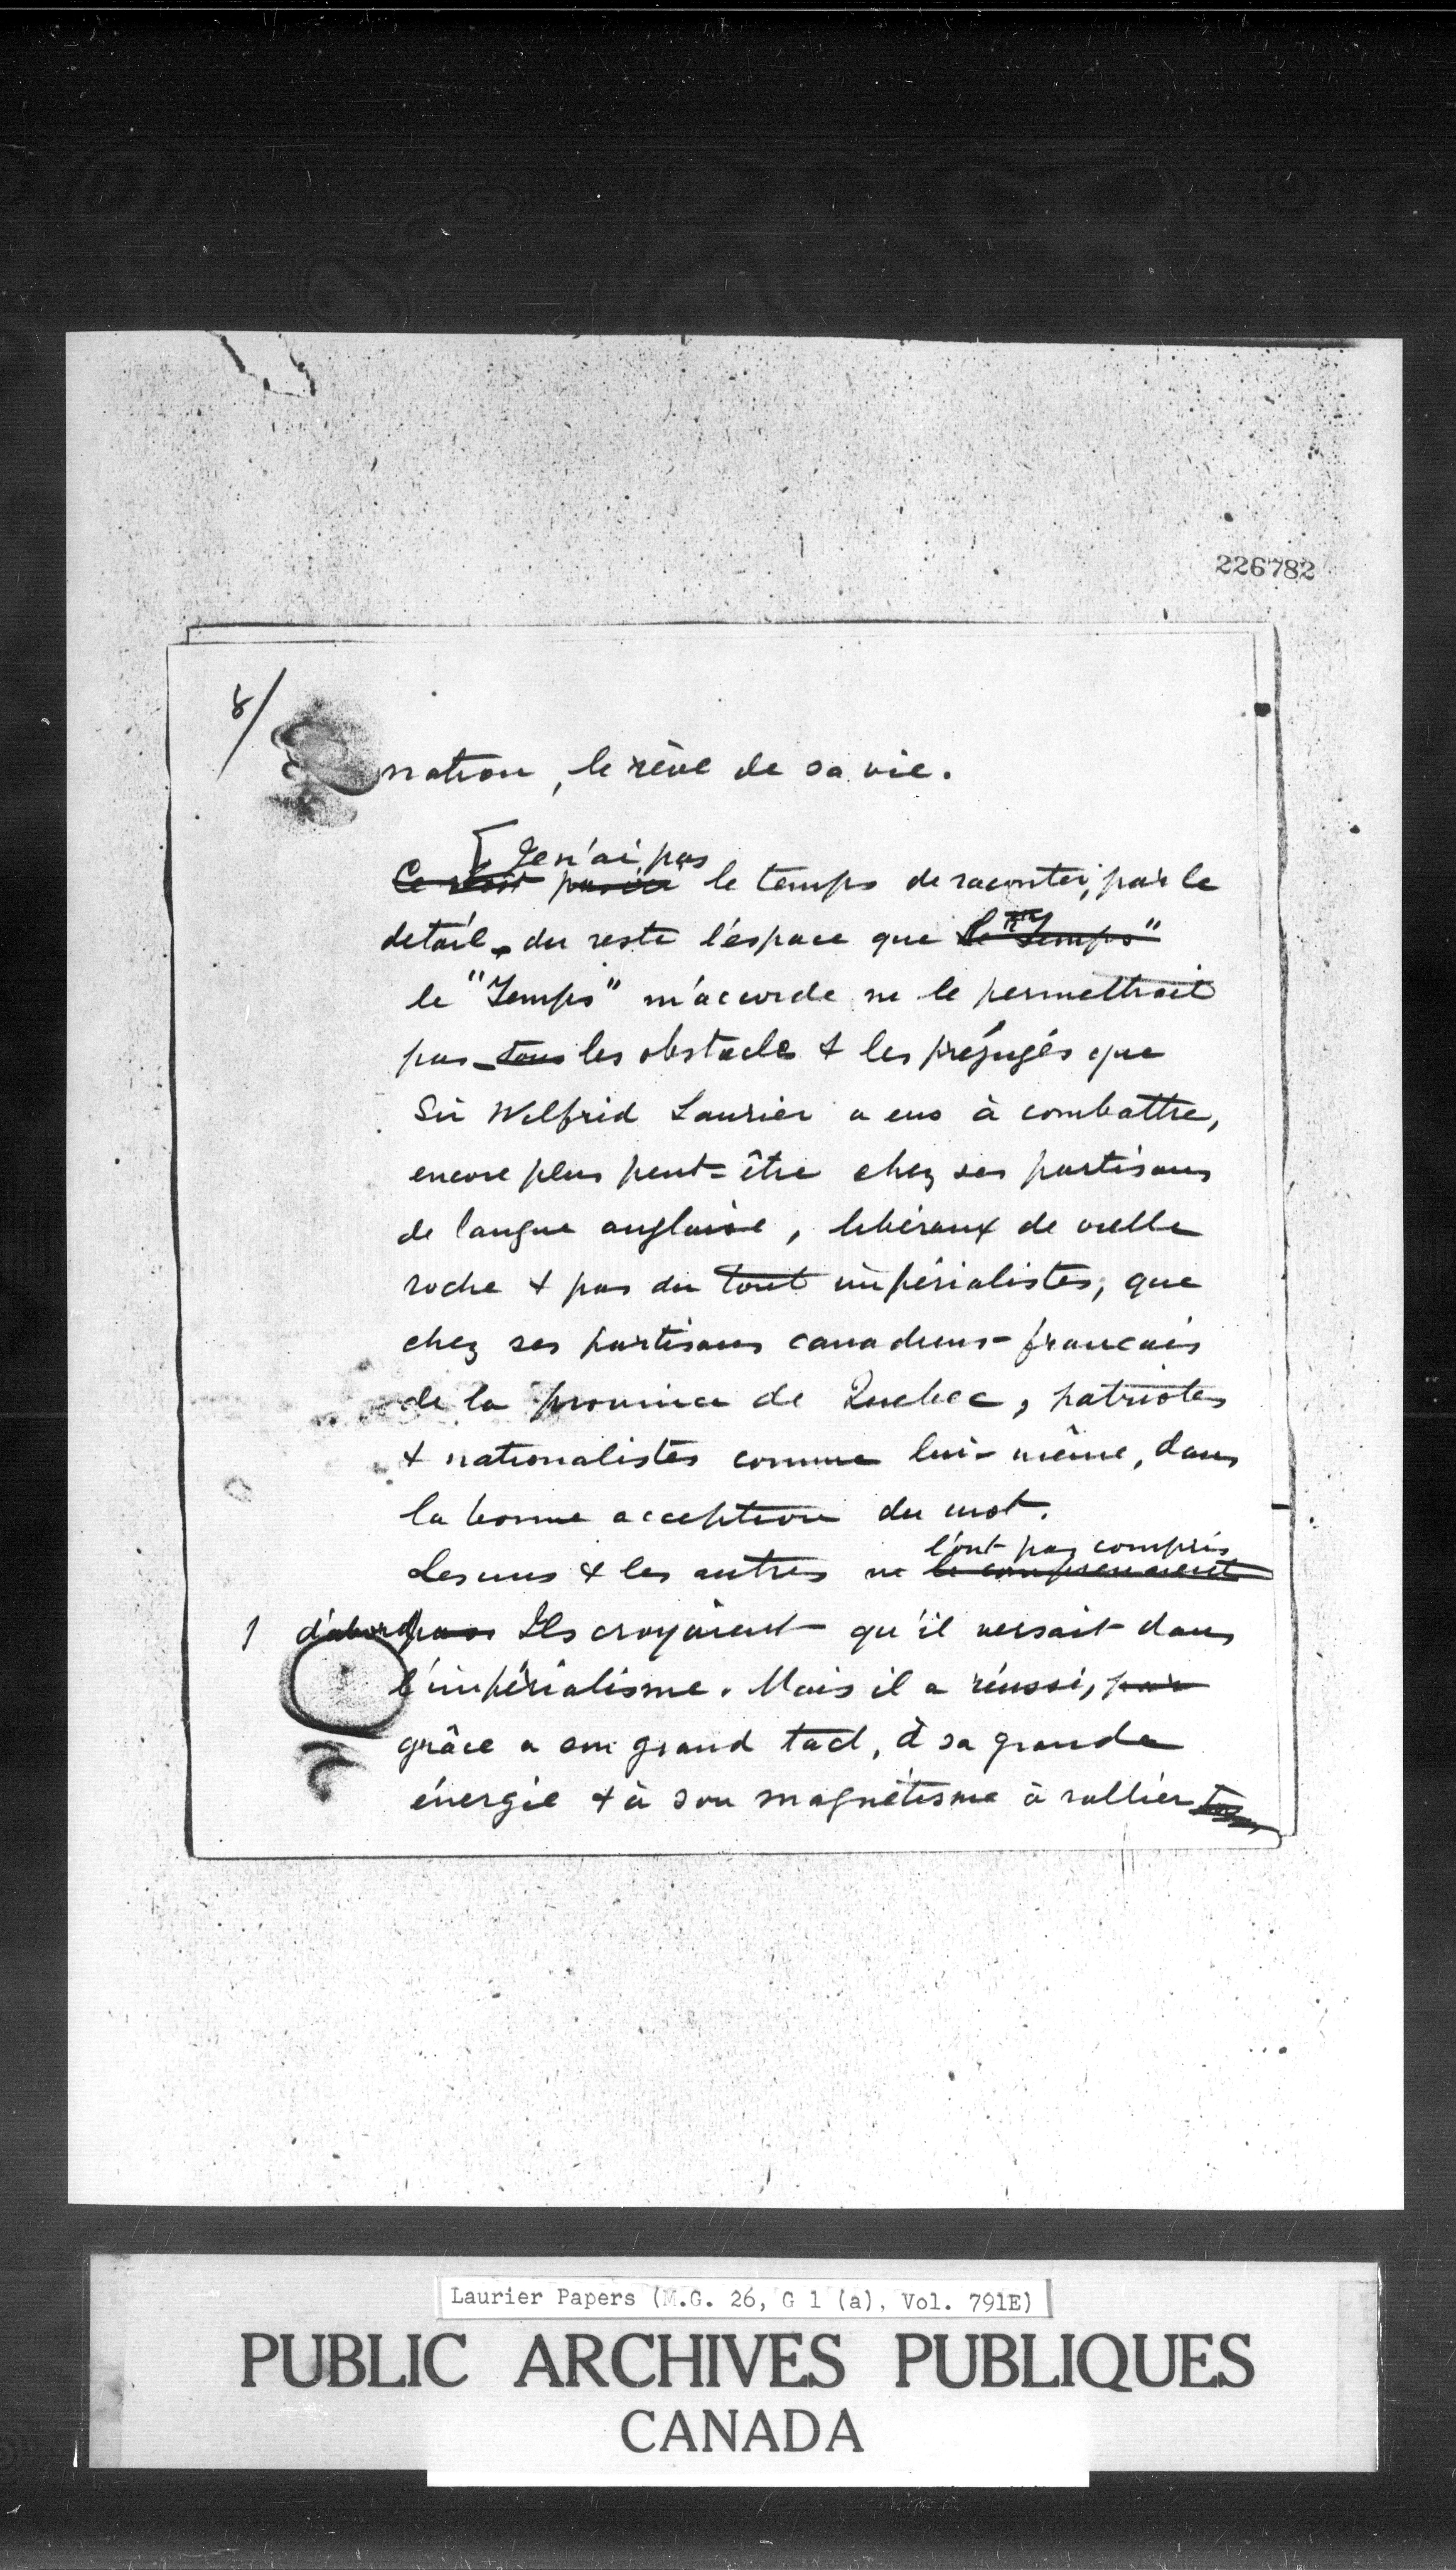 226782
8/
nation, le rêve de sa vie.
Je n'ai pas
le temps de raconter, par le
detail, du reste l'espace que le "Temps"
le "Temps" m'accorde ne le permettrait
pas tous les obstacles & les préjugés que
Sir Wilfrid Laurier a eus à combattre,
encore plus peut=être chez ses partisans
de langue anglaise, libéraux de vielle
roche & pas du tout impérialistes, que
chez ses partisans canadiens-francais
de la province de Quebec, patriotes
& nationalistes comme lui-même, dans
la bonne acception du mot.
l'ont pas compris
Les uns & les autres ne le comprenaient
d'abord pas Ils croyaient qu'il versait dans
l'impérialisme. Mais il a réussi, par
grâce a son grand tact, à sa grande
énergie & à son magnétisme à rallier
Laurier Papers (M.G. 26, G 1 (a), Vol. 791E)
PUBLIC ARCHIVES PUBLIQUES
CANADA